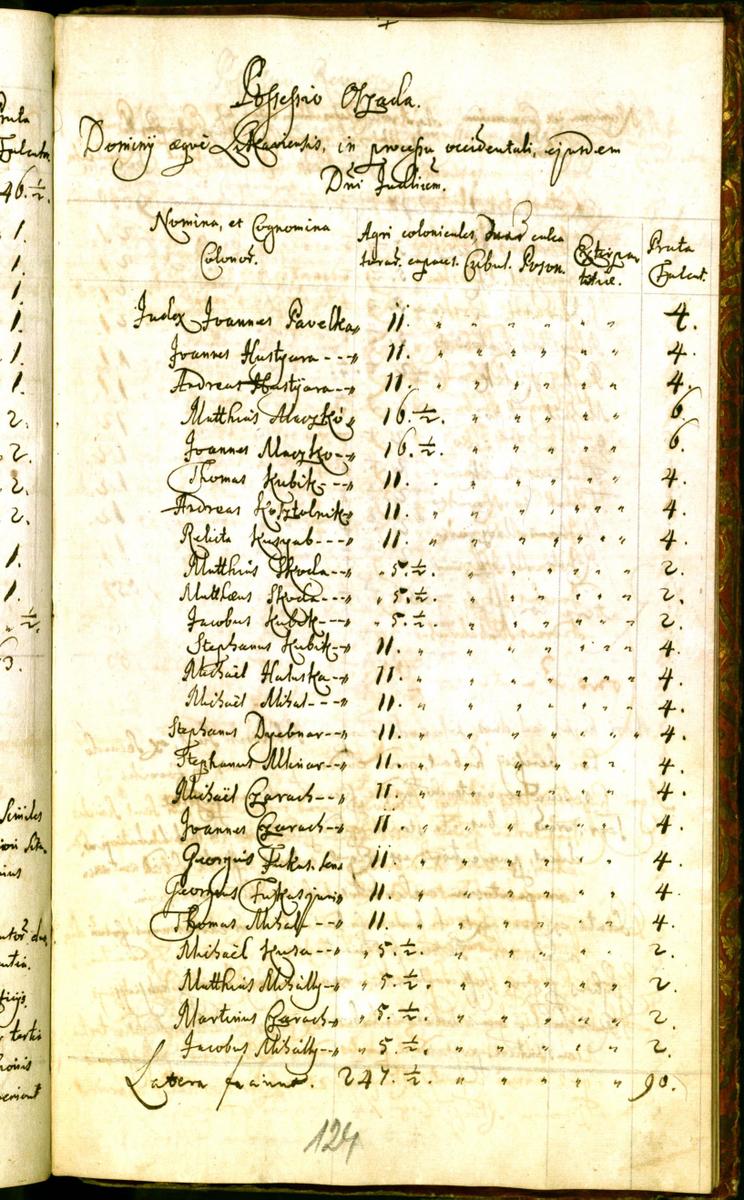 Possessio Oszada.
Dominÿ æquè Litkaviensis, in processu occidentali, ejusdem
Dni Judlium.
Nomina, et Cognomina
Colonor.
Agri coloniales, duas cultu
turas. capaces. Cubul. Poson.
Extirpa
titiae.
Prata
Falcat.
Judex Joannes Pavelka „ 11. „ „ „ „ „ „ 4.
Joannes Hustyava - - - „ 11. „ „ „ „ „ „ 4.
Andreas Hustÿava - - „ 11. „ „ „ „ „ „ 4.
Matthias Maczkó „ 16. ½. „ „ „ „ „ 6.
Joannes Maczko - - „ 16. ½. „ „ „ „ „ 6.
Thomas Kubik - - - „ 11. „ „ „ „ „ „ 4.
Andreas Kosztolnik „ 11. „ „ „ „ „ „ 4.
Relicta - - - - „ 11. „ „ „ „ „ „ 4.
Matthias Skoda - - - „ „ 5. ½. „ „ „ „ „ 2.
Matthæus Skoda - - - „ „ 5. ½. „ „ „ „ „ 2.
Jacobus Kubik - - „ „ 5. ½. „ „ „ „ „ 2.
Stephanus Kubik - - „ 11. „ „ „ „ „ „ 4.
Michaël Haluska - - „ 11. „ „ „ „ „ „ 4.
Michaël Mihal - - - - „ 11. „ „ „ „ „ „ 4.
Stephanus - - - „ 11. „ „ „ „ „ „ 4.
Stephanus Mlinar - - „ 11. „ „ „ „ „ „ 4.
Michaël Czarach - - - „ 11. „ „ „ „ „ „ 4.
Joannes Czarach - - „ 11. „ „ „ „ „ „ 4.
Georgius Fukas. sen „ 11. „ „ „ „ „ „ 4.
Georgius Fukas juni „ 11. „ „ „ „ „ „ 4.
Thomas Mihal - - „ 11. „ „ „ „ „ „ 4.
Michaël Kusa - - - „ „ 5. ½. „ „ „ „ „ 2.
Matthias Mihally - - „ „ 5. ½. „ „ „ „ „ 2.
Martinus Czarach „ „ 5. ½. „ „ „ „ „ 2.
Jacobus Mihally - - „ „ 5. ½. „ „ „ „ „ 2.
Latera faciunt. 247. ½. „ „ „ „ „ 90.
124